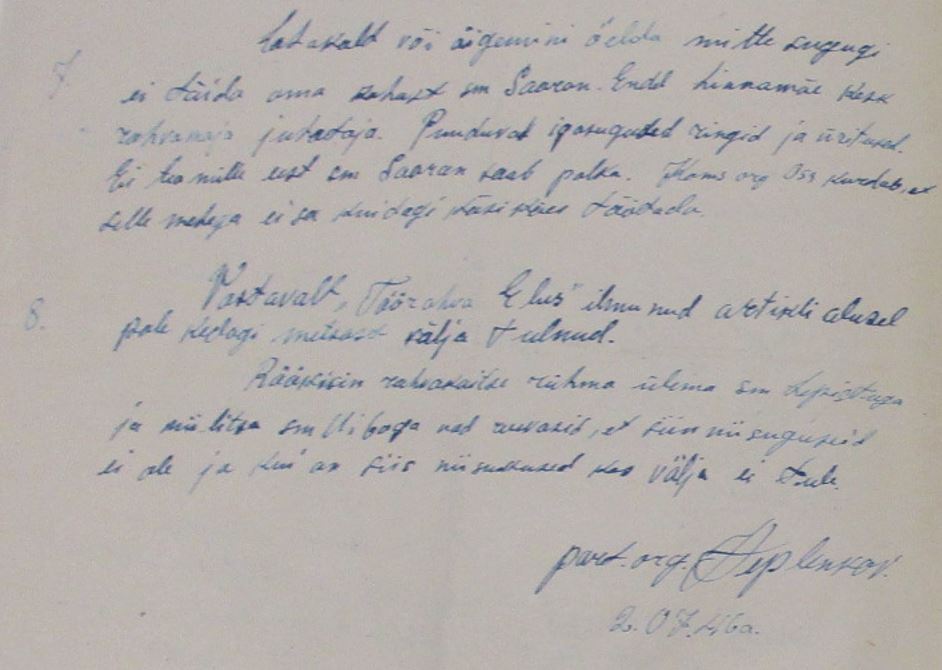 7. Lohakalt või õigemini öelda mitte sugugi
ei täida oma kohust sm Saaran. Endel hinnamäe kesk
rahvamaja juhataja. Puuduvad igasugused ringid ja üritused.
Ei tea mille eest sm Saaran saab palka. Koms org Oss kurdab, et
selle mehega ei saa kuidagi käsikäes töötada.
8. Vastavalt „Töörahva Elus" ilmunud artikli alusel
pole kedagi metsast välja tulnud.
Rääkisin rahvakaitse rühma ülema sm
ja miilitsa sm Uiboga nad arvasid, et siin niisuguseid
ei ole ja kui on siis niisukused kes välja ei tule.
part.org.
2. 07.46a.